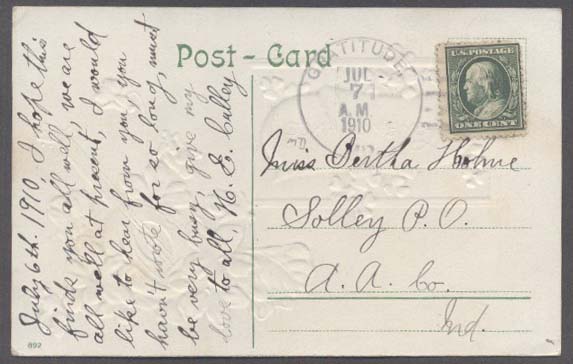 Post-Card
July 6th. 1910. I hope this
finds you all well, we are
all well at present, I would
like to hear from you, you
havn't wrote for so long, must
be very busy, give my
love to all, N. E.
GRATITUDE
JUL
7
A.M
1910
U.S. POSTAGE
ONE CENT
Miss Bertha Holme
Solley P.O.
A. A. Co.
Md.
892